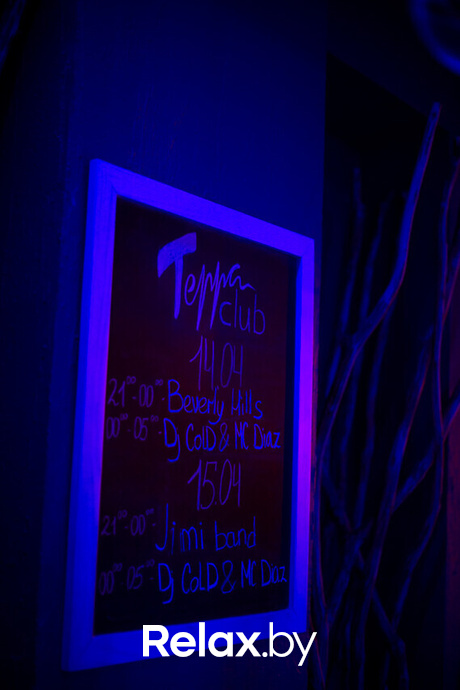 Терра
club
14.04
21⁰⁰-00⁰⁰ Beverly Hills
00⁰⁰-05⁰⁰ Dj ColD & MC Diaz
15.04
21⁰⁰-00⁰⁰ Jimi band
00⁰⁰-05⁰⁰ Dj ColD & MC Diaz
Relax.by